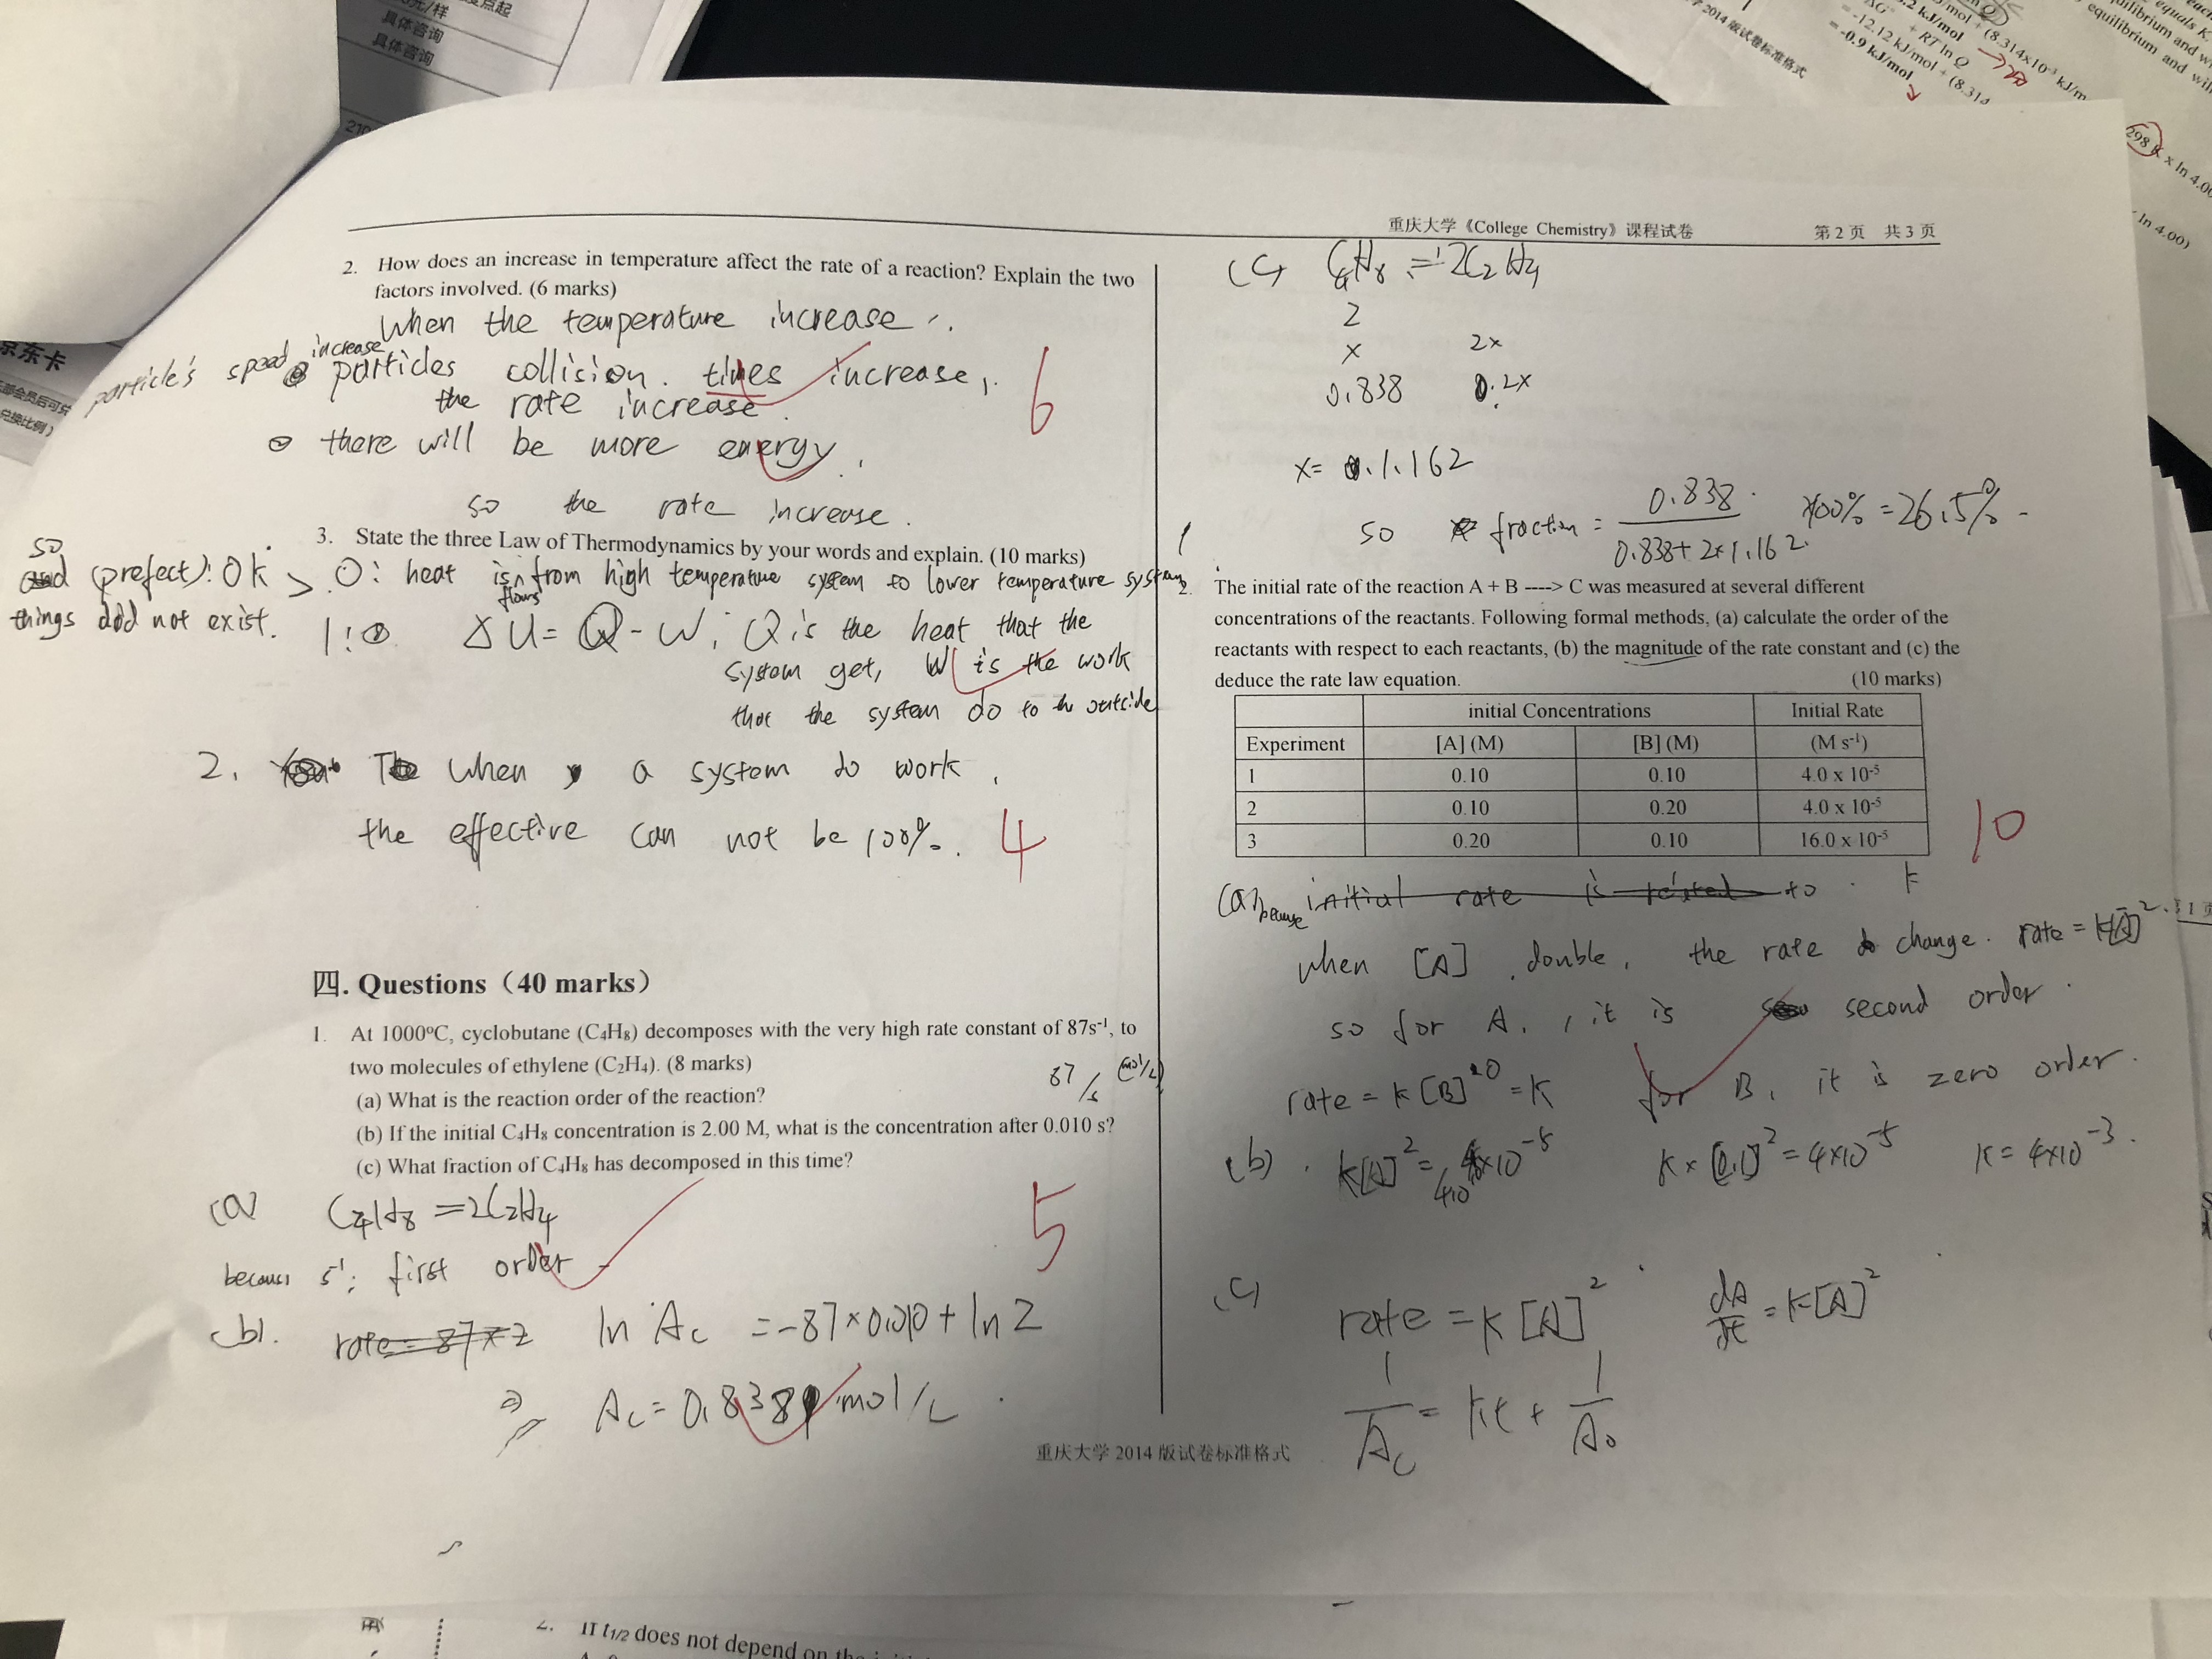 元/样
度点起
具体咨询
具体咨询
210
京东卡
兑换比例）
2014版试卷标准格式
.2 kJ/mol
+ RT ln Q
= -12.12 kJ/mol + (8.314
= -0.9 kJ/mol
mol + (8.314x10⁻³ kJ/m
equals K.
equilibrium and w
equilibrium and will
298 K x ln 4.00
ln 4.00)
重庆大学《College Chemistry》课程试卷 第2页 共3页
2. How does an increase in temperature affect the rate of a reaction? Explain the two
factors involved. (6 marks)
When the temperature increase.
particle's speed increase
particles collision. times increase,
the rate increase.
there will be more energy.
so the rate increase.
6
3. State the three Law of Thermodynamics by your words and explain. (10 marks)
so
(prefect): 0k > 0: heat is flows from high temperature system to lower temperature system
things did not exist.
1: ΔU = Q - W, Q is the heat that the
system get, W is the work
that the system do to the outside
2. When a system do work,
the effective can not be 100%.
4
四. Questions（40 marks）
1. At 1000°C, cyclobutane (C₄H₈) decomposes with the very high rate constant of 87s⁻¹, to
two molecules of ethylene (C₂H₄). (8 marks)
87/s (mol/L)
(a) What is the reaction order of the reaction?
(b) If the initial C₄H₈ concentration is 2.00 M, what is the concentration after 0.010 s?
(c) What fraction of C₄H₈ has decomposed in this time?
(a) C₄H₈ = 2C₂H₄
because s⁻¹, first order
5
(b). rate = 87 × 2 ln Ac = -87×0.010 + ln 2
⇒ Ac = 0.838 mol/L
(c) C₄H₈ = 2C₂H₄
2
x 2x
0.838 2x
x = 1.162
so fraction = 0.838 / 0.838+2×1.162 ×100% = 26.5%
2. The initial rate of the reaction A + B ----> C was measured at several different
concentrations of the reactants. Following formal methods, (a) calculate the order of the
reactants with respect to each reactants, (b) the magnitude of the rate constant and (c) the
deduce the rate law equation. (10 marks)
initial Concentrations Initial Rate
Experiment [A] (M) [B] (M) (M s⁻¹)
1 0.10 0.10 4.0 x 10⁻⁵
2 0.10 0.20 4.0 x 10⁻⁵
3 0.20 0.10 16.0 x 10⁻⁵
10
(a) because initial rate is related to k
when [A] double, the rate change. rate = k[A]²
so for A, it is second order.
rate = k[B]⁰ = k for B, it is zero order.
(b) k[A]² = 4×10⁻⁵ k×[0.1]² = 4×10⁻⁵ k = 4×10⁻³.
(c) rate = k[A]² dA/dt = k[A]²
1/Ac = kt + 1/A₀
重庆大学 2014 版试卷标准格式
2. If t1/2 does not depend on the